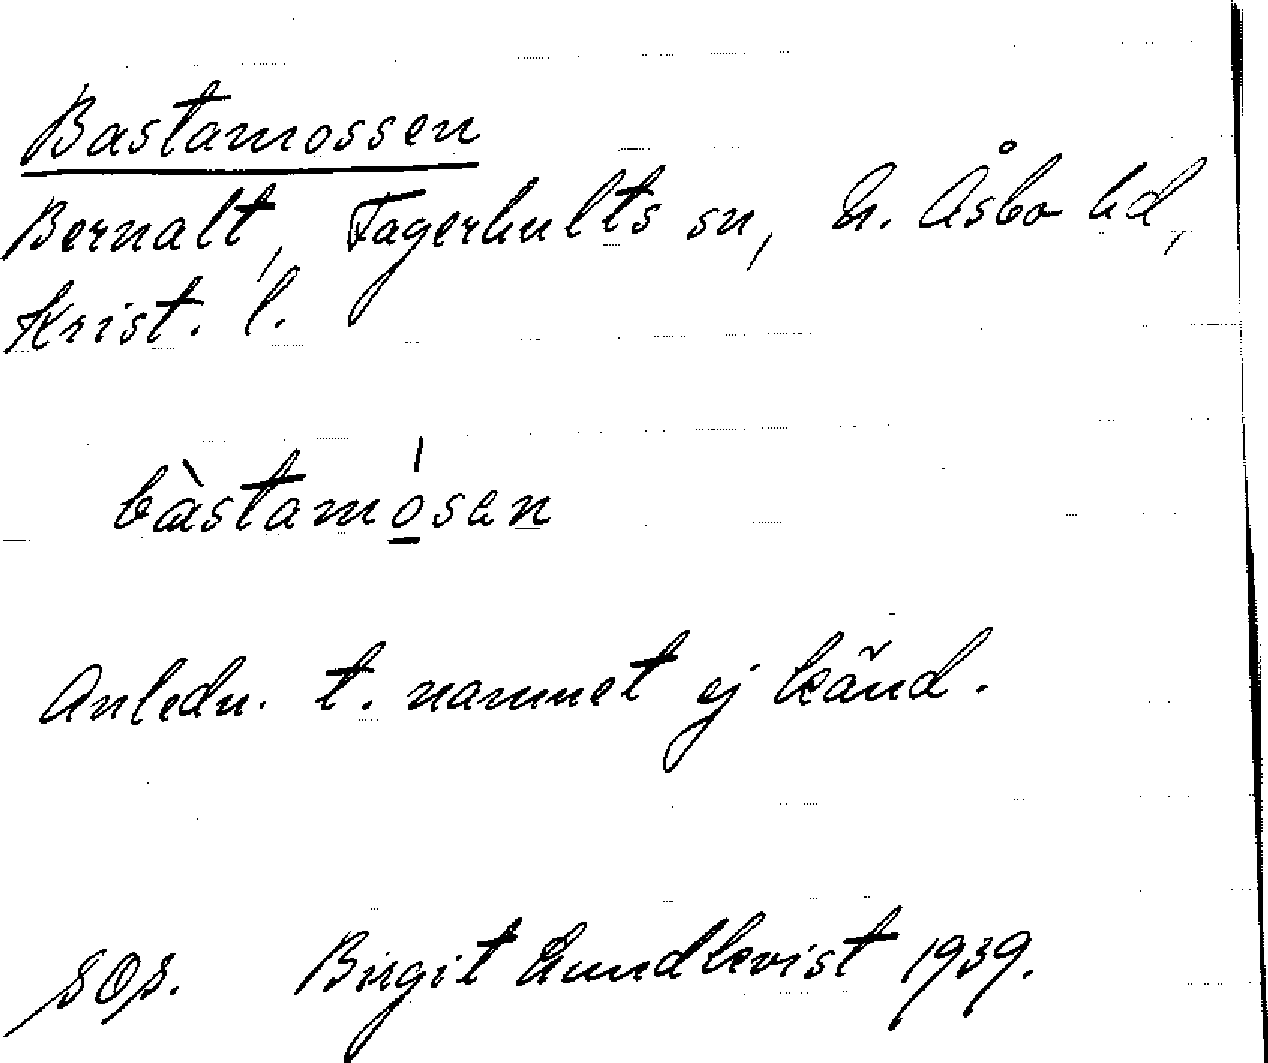 Bastamossen
Bernalt, Fagerhults sn, N. Åsbo hd,
Krist. l.
bàstamósen
Anledn. t. namnet ej känd.
SOS. Birgit Lundkvist 1939.